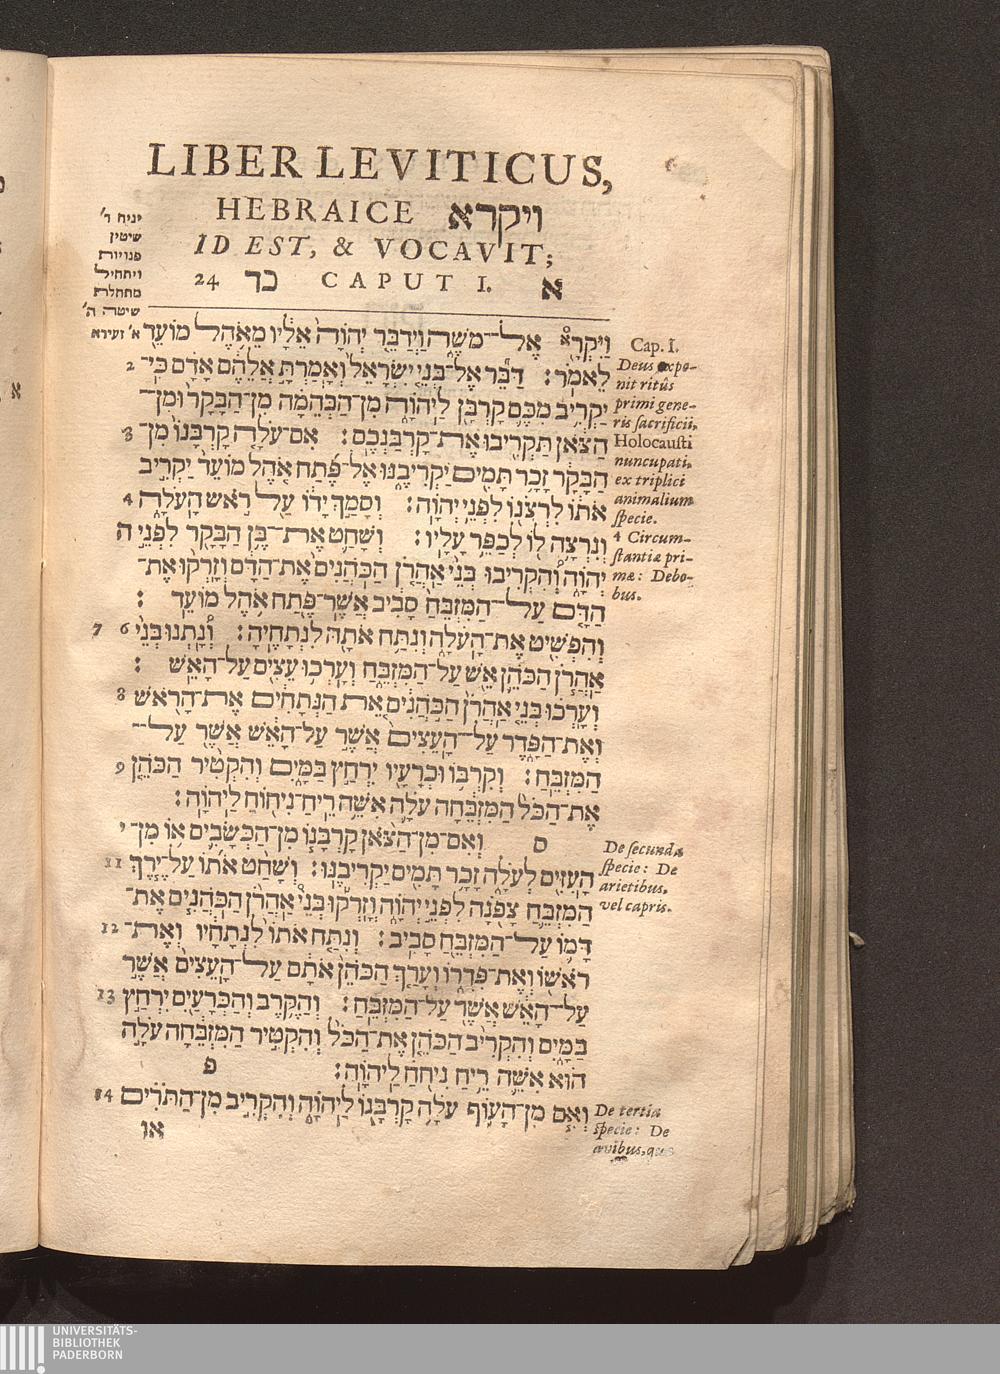 LIBER LEVITICUS,
HEBRAICE ויקרא
ID EST, & VOCAVIT;
24 כד CAPUT I. א
יניח ד'
שיטין
פנויות
ויתחיל
מתחלת
שיטה ה'
א' זעירא
וַיִּקְרָ֖א אֶל־מֹשֶׁ֑ה וַיְדַבֵּ֤ר יְהוָֹה֙ אֵלָ֔יו מֵאֹ֥הֶל מוֹעֵ֖ד
לֵאמֹֽר׃ דַּבֵּ֞ר אֶל־בְּנֵ֤י יִשְׂרָאֵל֙ וְאָמַרְתָּ֣ אֲלֵהֶ֔ם אָדָ֗ם כִּֽי־ 2
יַקְרִ֥יב מִכֶּ֛ם קָרְבָּ֖ן לַֽיהוָֹ֑ה מִן־הַבְּהֵמָ֗ה מִן־הַבָּקָר֙ וּמִן־
הַצֹּ֔אן תַּקְרִ֖יבוּ אֶת־קָרְבַּנְכֶֽם׃ אִם־עֹלָ֤ה קָרְבָּנוֹ֙ מִן־ 3
הַבָּקָ֔ר זָכָ֥ר תָּמִ֖ים יַקְרִיבֶ֑נּוּ אֶל־פֶּ֜תַח אֹ֤הֶל מוֹעֵד֙ יַקְרִ֣יב
אֹת֔וֹ לִרְצֹנ֖וֹ לִפְנֵ֥י יְהוָֹֽה׃ וְסָמַ֣ךְ יָד֔וֹ עַ֖ל רֹ֣אשׁ הָעֹלָ֑ה 4
וְנִרְצָ֥ה ל֖וֹ לְכַפֵּ֥ר עָלָֽיו׃ וְשָׁחַ֛ט אֶת־בֶּ֥ן הַבָּקָ֖ר לִפְנֵ֣י ה
יְהוָֹ֑ה וְ֠הִקְרִיבוּ בְּנֵ֨י אַהֲרֹ֤ן הַכֹּֽהֲנִים֙ אֶת־הַדָּ֔ם וְזָרְק֨וּ אֶת־
הַדָּ֤ם עַל־הַמִּזְבֵּ֙חַ֙ סָבִ֔יב אֲשֶׁר־פֶּ֖תַח אֹ֥הֶל מוֹעֵֽד׃
וְהִפְשִׁ֖יט אֶת־הָעֹלָ֑ה וְנִתַּ֥ח אֹתָ֖הּ לִנְתָחֶֽיהָ׃ וְ֠נָתְנוּ בְּנֵ֨י 6 7
אַהֲרֹ֧ן הַכֹּהֵ֛ן אֵ֖שׁ עַל־הַמִּזְבֵּ֑חַ וְעָרְכ֥וּ עֵצִ֖ים עַל־הָאֵֽשׁ׃
וְעָרְכ֗וּ בְּנֵ֤י אַהֲרֹן֙ הַכֹּ֣הֲנִ֔ים אֵ֚ת הַנְּתָחִ֔ים אֶת־הָרֹ֖אשׁ 8
וְאֶת־הַפָּ֑דֶר עַל־הָעֵצִים֙ אֲשֶׁ֣ר עַל־הָאֵ֔שׁ אֲשֶׁ֖ר עַל־
הַמִּזְבֵּֽחַ׃ וְקִרְבּ֥וֹ וּכְרָעָ֖יו יִרְחַ֣ץ בַּמָּ֑יִם וְהִקְטִ֨יר הַכֹּהֵ֤ן 9
אֶת־הַכֹּל֙ הַמִּזְבֵּ֔חָה עֹלָ֛ה אִשֵּׁ֥ה רֵֽיחַ־נִיח֖וֹחַ לַֽיהוָֹֽה׃
ס וְאִם־מִן־הַצֹּ֨אן קָרְבָּנ֧וֹ מִן־הַכְּשָׂבִ֛ים א֥וֹ מִן־ י
הָעִזִּ֖ים לְעֹלָ֑ה זָכָ֥ר תָּמִ֖ים יַקְרִיבֶֽנּוּ׃ וְשָׁחַ֨ט אֹת֜וֹ עַ֣ל יֶ֧רֶךְ 11
הַמִּזְבֵּ֛חַ צָפֹ֖נָה לִפְנֵ֣י יְהוָֹ֑ה וְזָרְק֡וּ בְּנֵי֩ אַהֲרֹ֨ן הַכֹּהֲנִ֧ים אֶת־
דָּמ֛וֹ עַל־הַמִּזְבֵּ֖חַ סָבִֽיב׃ וְנִתַּ֤ח אֹתוֹ֙ לִנְתָחָ֔יו וְאֶת־ 12
רֹאשׁ֖וֹ וְאֶת־פִּדְר֑וֹ וְעָרַ֤ךְ הַכֹּהֵן֙ אֹתָ֔ם עַל־הָעֵצִים֙ אֲשֶׁ֣ר
עַל־הָאֵ֔שׁ אֲשֶׁ֖ר עַל־הַמִּזְבֵּֽחַ׃ וְהַקֶּ֥רֶב וְהַכְּרָעַ֖יִם יִרְחַ֣ץ 13
בַּמָּ֑יִם וְהִקְרִ֨יב הַכֹּהֵ֤ן אֶת־הַכֹּל֙ וְהִקְטִ֣יר הַמִּזְבֵּ֔חָה עֹלָ֣ה
ה֗וּא אִשֵּׁ֛ה רֵ֥יחַ נִיחֹ֖חַ לַיהוָֹֽה׃ פ
וְאִ֧ם מִן־הָע֛וֹף עֹלָ֥ה קָרְבָּנ֖וֹ לַֽיהוָֹ֑ה וְהִקְרִ֣יב מִן־הַתֹּרִ֗ים 14
או
Cap. I.
Deus expo-
nit ritûs
primi gene-
ris sacrificii,
Holocausti
nuncupati,
ex triplici
animalium
specie.
4 Circum-
stantiæ pri-
mæ: De bo-
bus.
De secunda
specie: De
arietibus,
vel capris.
De tertia
specie: De
avibus, quæ
UNIVERSITÄTS-
BIBLIOTHEK
PADERBORN